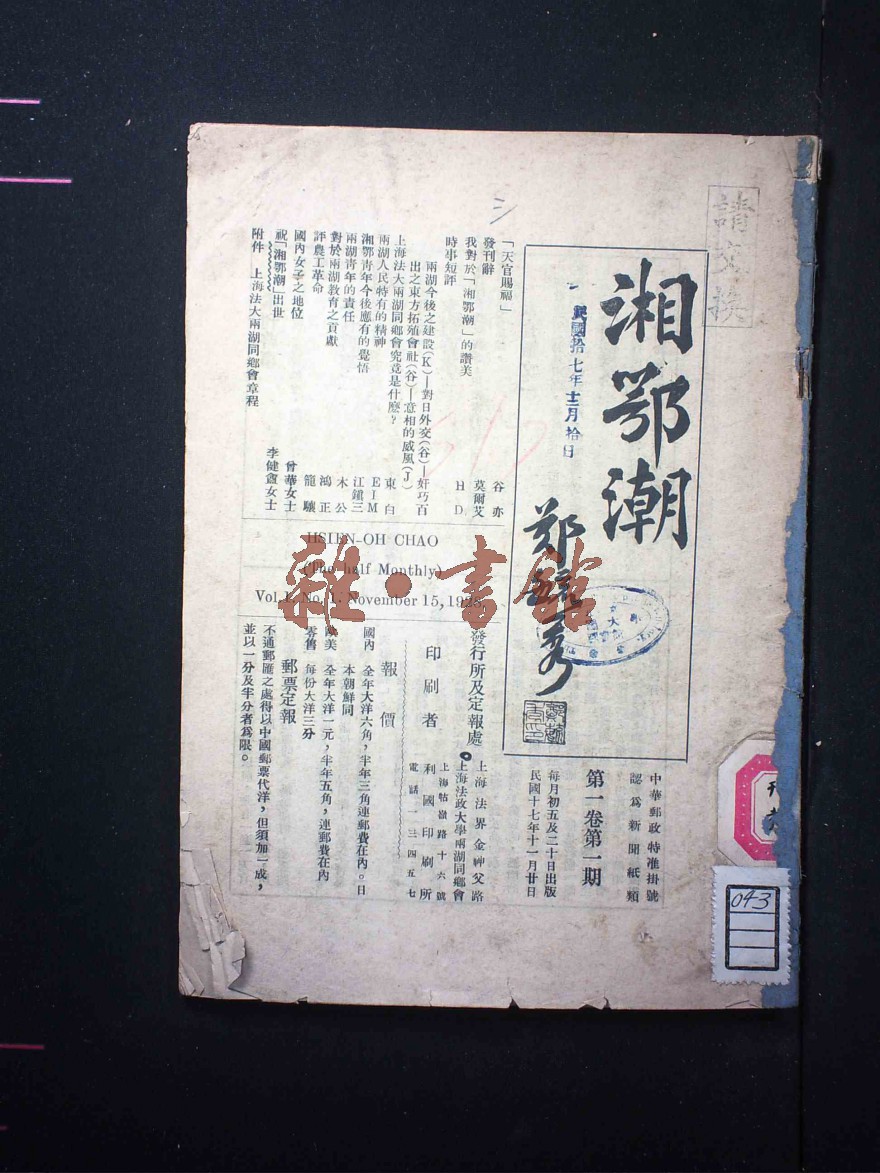 請交換
湘鄂潮
鄭毓秀
民國拾七年十二月拾日
中華郵政特准掛號
認爲新聞紙類
第一卷第一期
每月初五及二十日出版
民國十七年十一月廿日
「天官賜福」
發刊辭 谷亦
我對於「湘鄂潮」的讚美 莫爾艾
時事短評 H D
兩湖今後之建設(K)—對日外交(谷)—奸巧百
出之東方拓殖會社(谷)—意相的威風(J)
上海法大兩湖同鄉會究竟是什麽? 東白
兩湖人民特有的精神 E I M
湘鄂青年今後應有的覺悟 江鎮三
兩湖青年的責任 木公
對於兩湖教育之貢獻 鴻正
評農工革命 龍驤
國內女子之地位 曾華女士
祝「湘鄂潮」出世 李健盦女士
附件 上海法大兩湖同鄉會章程
HSIEN-OH CHAO
(The half Monthly)
Vol. 1. No. 1. November 15, 1928.
發行所及定報處
上海法界金神父路
上海法政大學兩湖同鄉會
印刷者
上海牯嶺路十六號
利國印刷所
電話一三四五七
報價
國內 全年大洋六角,半年三角連郵費在內。日
本朝鮮同
歐美 全年大洋一元,半年五角,連郵費在內
零售 每份大洋三分
郵票定報
不通郵匯之處得以中國郵票代洋,但須加一成,
並以一分及半分者爲限。
043
雜·書館